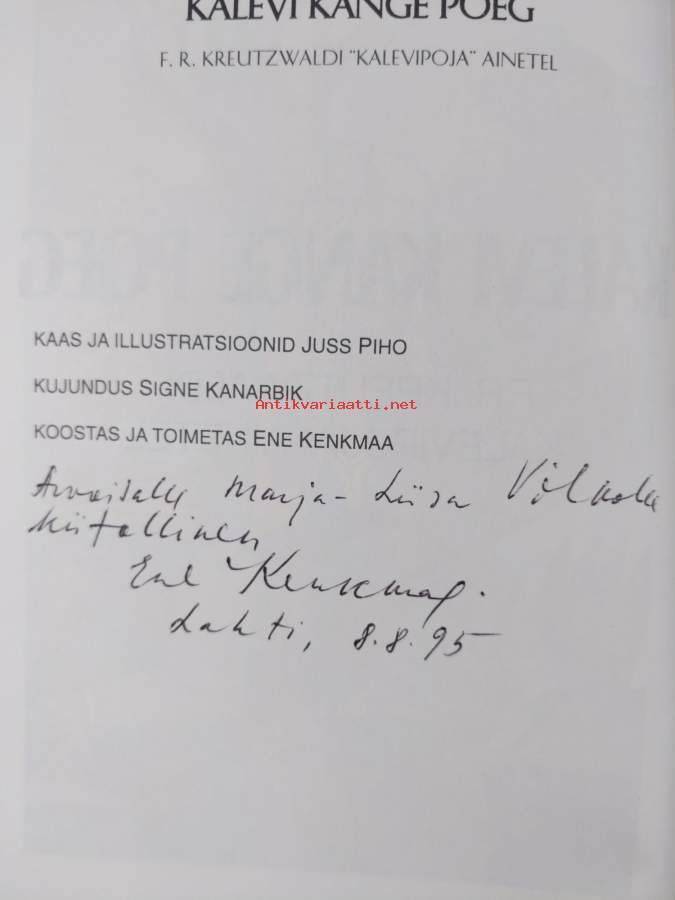 KALEVI KANGE POEG
F. R. KREUTZWALDI "KALEVIPOJA" AINETEL
KAAS JA ILLUSTRATSIOONID JUSS PIHO
KUJUNDUS SIGNE KANARBIK
Antikvariaatti.net
KOOSTAS JA TOIMETAS ENE KENKMAA
Arvoisalle Marja-Liisa
kiitollinen
Ene Kenkmaa.
Lahti, 8.8.95